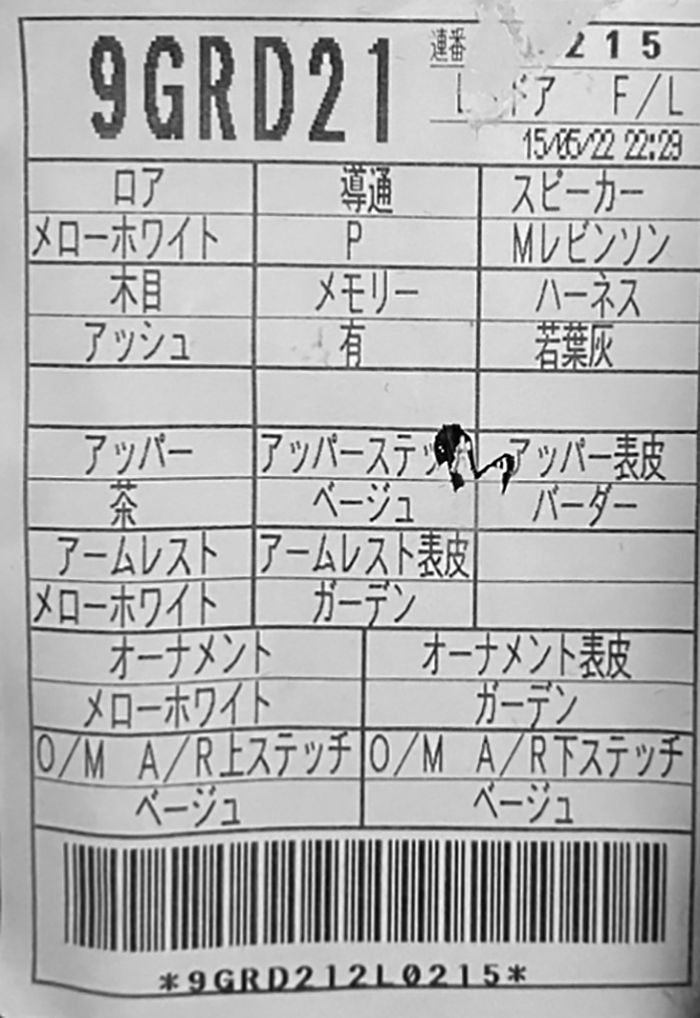 9GRD21
連番 215
ドア F/L
15/05/22 22:29
ロア 導通 スピーカー
メローホワイト P Mレビンソン
木目 メモリー ハーネス
アッシュ 有 若葉灰
アッパー アッパーステッ アッパー表皮
茶 ベージュ バーダー
アームレスト アームレスト表皮
メローホワイト ガーデン
オーナメント オーナメント表皮
メローホワイト ガーデン
O/M A/R上ステッチ O/M A/R下ステッチ
ベージュ ベージュ
*9GRD212L0215*